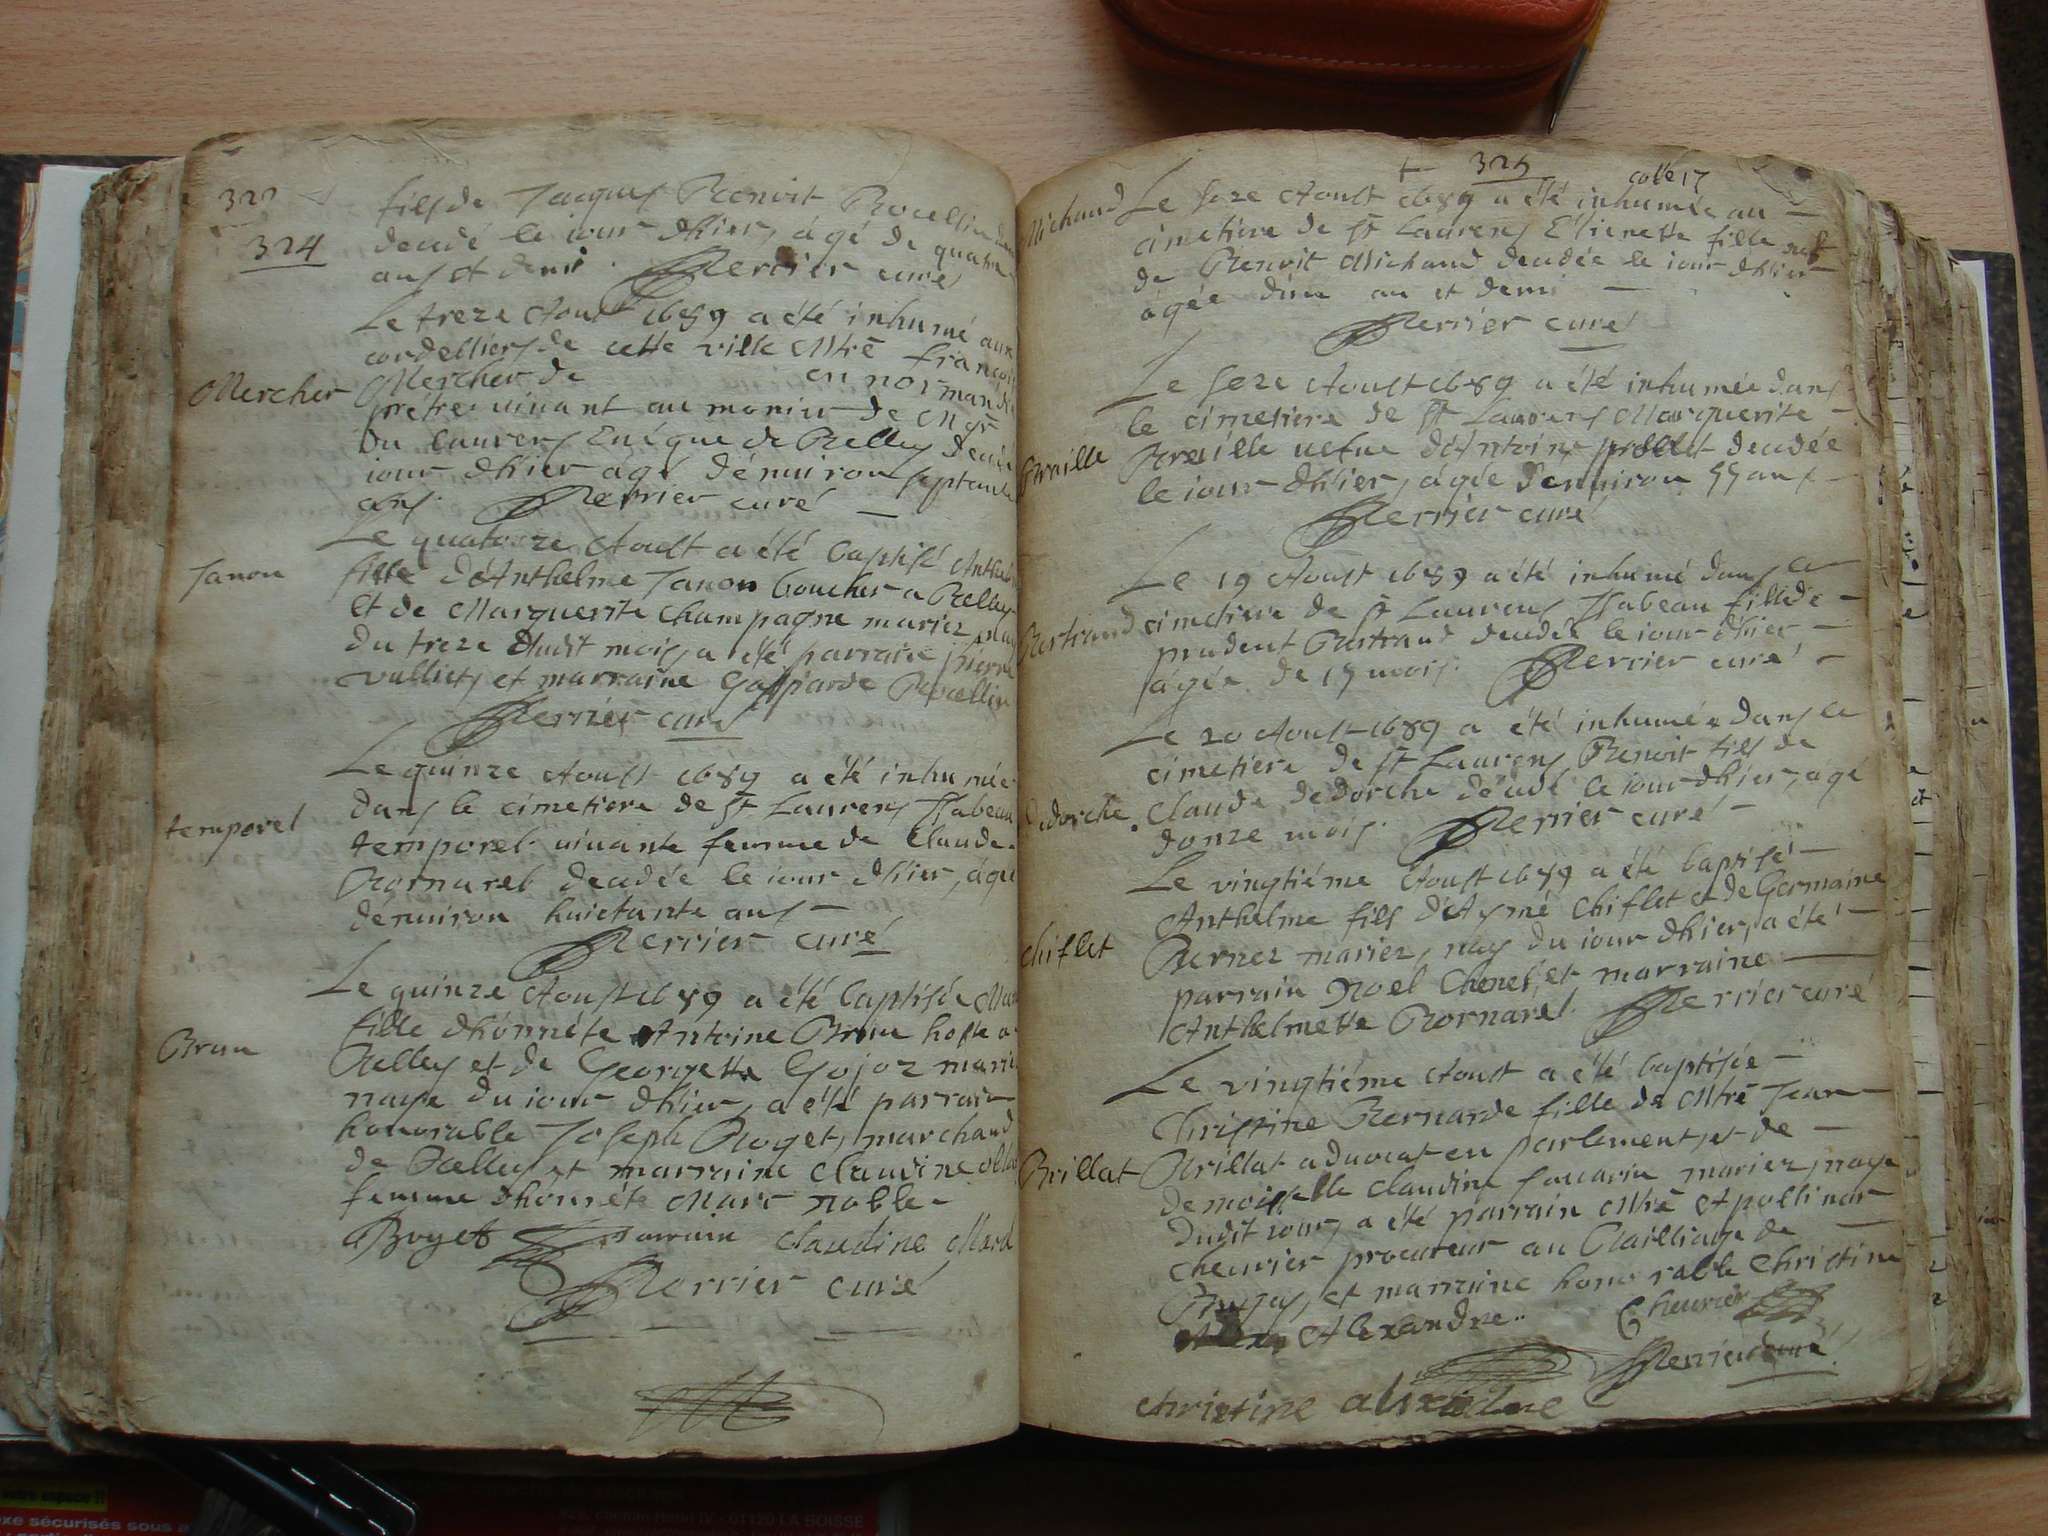 324
fils de Jacques Benoit
decedé le iour dhier, agé de quatre
ans et demi. Perrier curé
Le treze Aoust 1689 a été inhumé aux
cordelliers de cette ville Mtre françois
Mercher
Mercher de en normandie
prétre vivant au de Mgr
Du Laurens Evéque de Belley decedé
iour dhier agé dénuiron septante
ans. Perrier curé
Le quatorze Aoust a été baptisé
Janon
fille dAnthelme Janon boucher a Belley
et de Marguerite Champagne mariez
du treze dudit mois, a été parrain pierre
vulliet, et marraine Gasparde
Perrier curé
Le quinze Aoust 1689 a été inhumée
dans le cimetiere de St Laurens Isabeau
temporel
temporel vivante femme de Claude
Bornarel decedée le iour dhier, agé
dénuiron huictante ans
Perrier curé
Le quinze Aoust 1689 a été baptisée
Brun
fille dhonnéte Antoine Brun hoste a
Belley et de Georgette Gojoz marie
naye du iour dhier, a été parrain
honorable Joseph Buget, marchand
de Belley et marraine Claudine
femme dhonnéte Marc noble
Buget parrain Claudine
Perrier curé
325
cotte 17
Michaud
Le seze Aoust 1689 a été inhumée au
cimetiere de St Laurens Etienette fille
de Benoit Michaud decedée le iour dhier
agée dun an et demi
Perrier curé
Le seze Aoust 1689 a été inhumée dans
le cimetiere de St Laurens Marguerite
vefue dAntoine decedée
le iour dhier, agée denuiron 55 ans
Perrier curé
Le 19 Aoust 1689 a été inhumé dans le
Bertrand
cimetiere de St Laurens Isabeau fille de
prudent Bertrand decedée le iour dhier
agée de 15 mois. Perrier curé
Le 20 Aoust 1689 a été inhumée dans le
cimetiere de St Laurens Benoit fils de
Dedorche
Claude Dedorche décedé le iour dhier, agé
donze mois. Perrier curé
Le vingtiéme Aoust 1689 a été baptisé
Anthelme fils dAymé Chiflet et de Germaine
Chiflet
Bernez mariez, nay du iour dhier, a été
parrain Noel et marraine
Anthelmette Bornarel. Perrier curé
Le vingtiéme Aoust a été baptisée
Christine Bernarde fille de Mtre Jean
Brillat
Brillat aduocat en parlement, et de
demoiselle Claudine mariez, naye
dudit iour, a été parrain Mtre Apollinar
Cheurier procureur au Bailliage de
Bugey, et marraine honorable Christine
Alexandre.. Cheurier
Perrier curé
christine alixandre